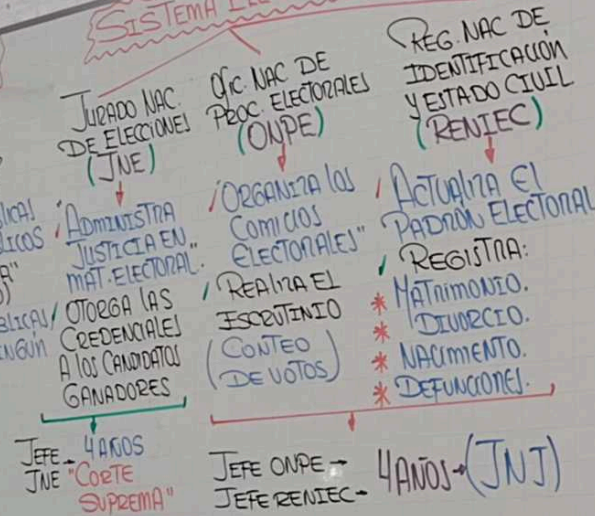 SISTEMA
JURADO NAC.
DE ELECCIONES
(JNE)
"ADMINISTRA
JUSTICIA EN
MAT. ELECTORAL".
OTORGA LAS
CREDENCIALES
A LOS CANDIDATOS
GANADORES
JEFE → 4 AÑOS
JNE "CORTE
SUPREMA"
OFIC. NAC DE
PROC. ELECTORALES
(ONPE)
"ORGANIZA LOS
COMICIOS
ELECTORALES"
REALIZA EL
ESCRUTINIO
(CONTEO
DE VOTOS)
REG. NAC DE
IDENTIFICACIÓN
Y ESTADO CIVIL
(RENIEC)
ACTUALIZA EL
PADRÓN ELECTORAL
REGISTRA:
* MATRIMONIO.
* DIVORCIO.
* NACIMIENTO.
* DEFUNCIONES.
JEFE ONPE →
JEFE RENIEC →
4 AÑOS → (JNJ)